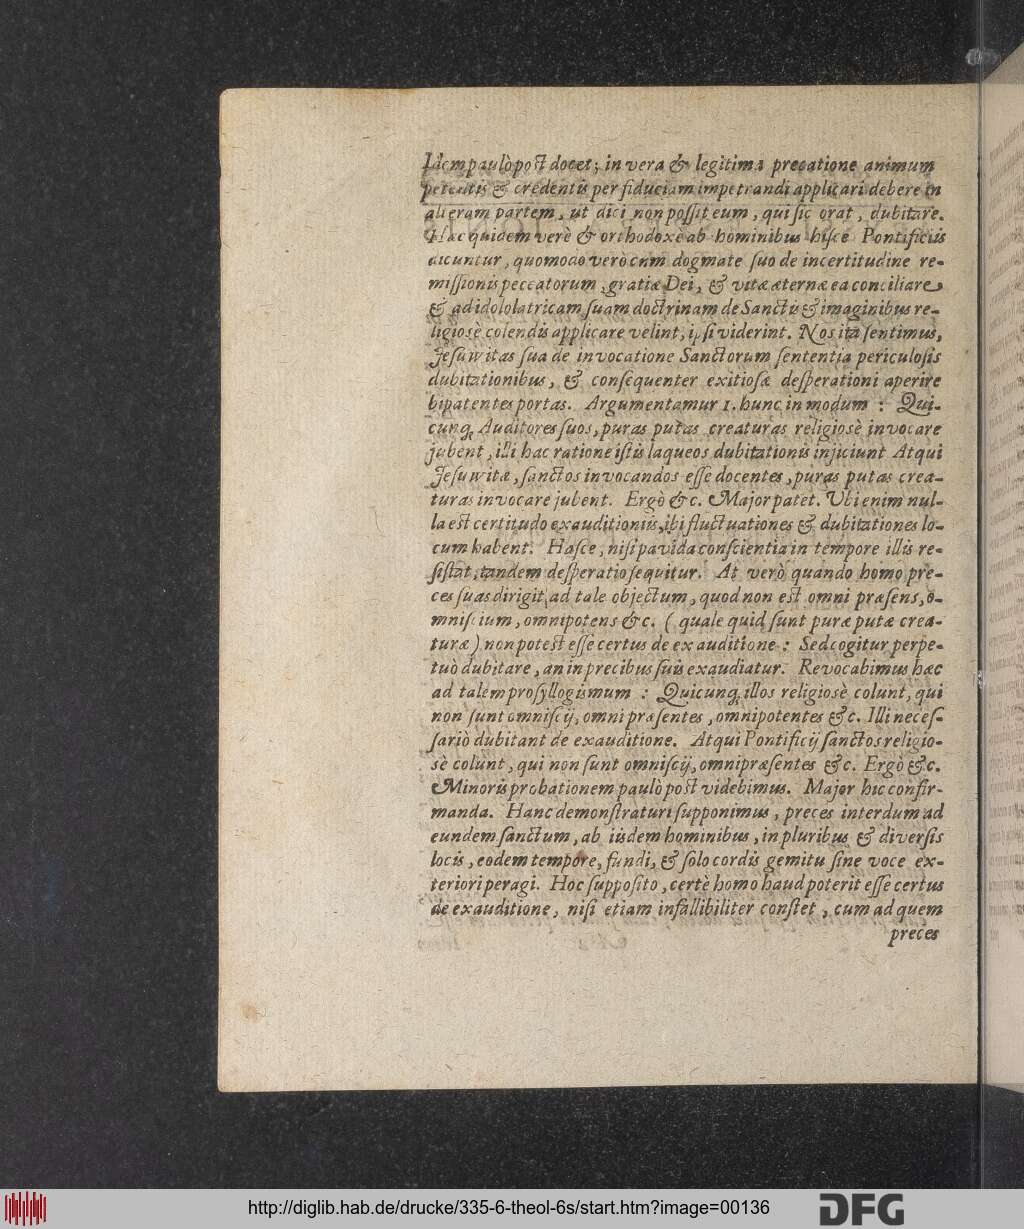 Idem paulò post docet; in vera & legitima precatione animum
petentis & credentis per fiduciam impetrandi applicari debere in
alteram partem, ut dici non poſſit eum, qui ſic orat, dubitare.
Hæc quidem verè & orthodoxè ab hominibus hiſce Pontificiis
dicuntur, quomodo verò cum dogmate ſuo de incertitudine re-
miſſionis peccatorum, gratiæ Dei, & vitæ æternæ ea conciliare
& ad idololatricam ſuam doctrinam de Sanctis & imaginibus re-
ligiosè colendis applicare velint, ipſi viderint. Nos ita ſentimus,
Jeſuwitas ſua de invocatione Sanctorum ſententia periculoſis
dubitationibus, & conſequenter exitioſæ deſperationi aperire
bipatentes portas. Argumentamur 1. hunc in modum: Qui-
cunq; Auditores ſuos, puras putas creaturas religiosè invocare
jubent, illi hac ratione iſtis laqueos dubitationis injiciunt Atqui
Jeſuwitæ, ſanctos invocandos eſſe docentes, puras putas crea-
turas invocare jubent. Ergò &c. Major patet. Ubi enim nul-
la est certitudo exauditioniis, ibi fluctuationes & dubitationes lo-
cum habent. Haſce, niſi pavida conſcientia in tempore illis re-
ſiſtat, tandem deſperatio ſequitur. At verò quando homo pre-
ces ſuas dirigit ad tale objectum, quod non est omni præſens, o-
mniſcium, omnipotens &c. (quale quid ſunt puræ putæ crea-
turæ) non potest eſſe certus de exauditione: Sed cogitur perpe-
tuò dubitare, an in precibus ſuis exaudiatur. Revocabimus hæc
ad talem proſyllogismum: Quicunq; illos religiosè colunt, qui
non ſunt omniſcij, omni præſentes, omnipotentes &c. Illi neceſ-
ſariò dubitant de exauditione. Atqui Pontificij ſanctos religio-
sè colunt, qui non ſunt omniſcij, omnipræſentes &c. Ergò &c.
Minoris probationem paulò post videbimus. Major hic confir-
manda. Hanc demonſtraturi ſupponimus, preces interdum ad
eundem ſanctum, ab iisdem hominibus, in pluribus & diverſis
locis, eodem tempore, fundi, & ſolo cordis gemitu ſine voce ex-
teriori peragi. Hoc ſuppoſito, certè homo haud poterit eſſe certus
de exauditione, niſi etiam infallibiliter conſtet, eum ad quem
preces
http://diglib.hab.de/drucke/335-6-theol-6s/start.htm?image=00136
DFG